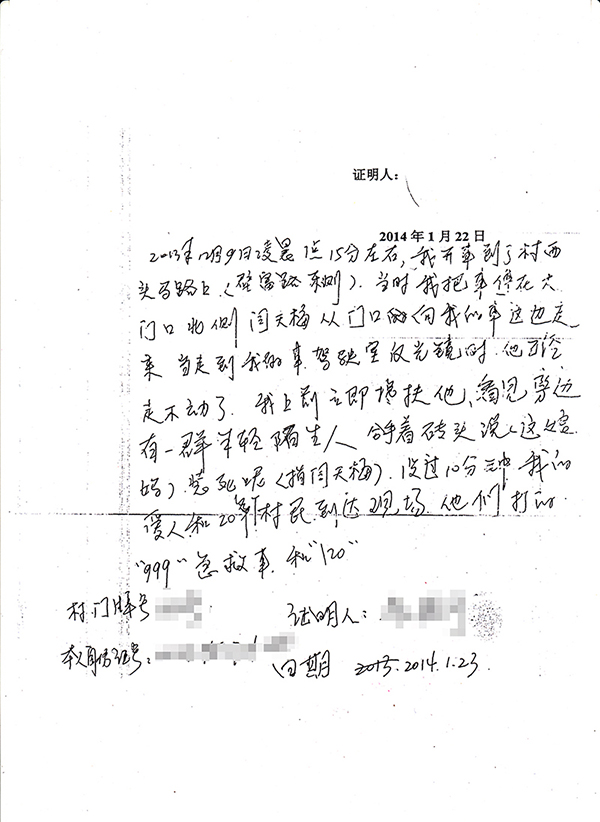 证明人：
2014年1月22日
2013年12月9日凌晨1点15分左右，我开车到了村西
头马路上（路东侧）．当时我把车停在大
门口北侧 闫天梅从门口向我的车这边走
来 当走到我的车驾驶室反光镜时．他已经
走不动了．我上前立即搀扶他、看见旁边
有一群年轻陌生人 拿着砖头说（这
妈）装死呢（指闫天梅）．没过10分钟我的
爱人和20村民到达现场．他们打的
"999"急救车．和"120"
村门牌号 证明人：
本人身份证号： 日期 2013.2014.1.23